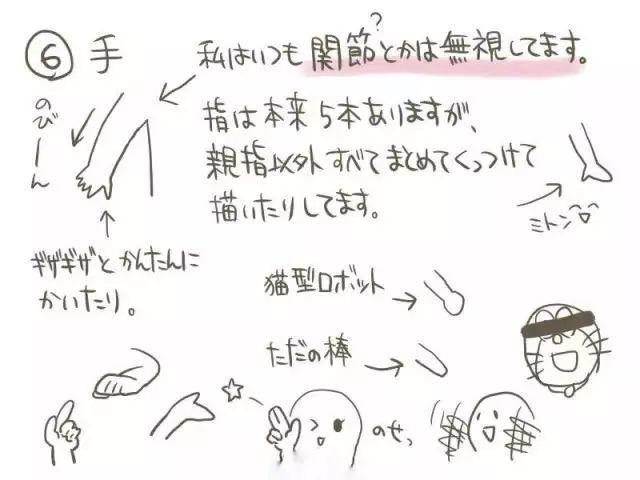 ⑥ 手
?
私はいつも関節とかは無視してます。
のびーん
指は本来5本ありますが、
親指以外すべてまとめてくっつけて
描いたりしてます。
ミトン
ギザギザとかんたんに
かいたり。
猫型ロボット
ただの棒
のせっ